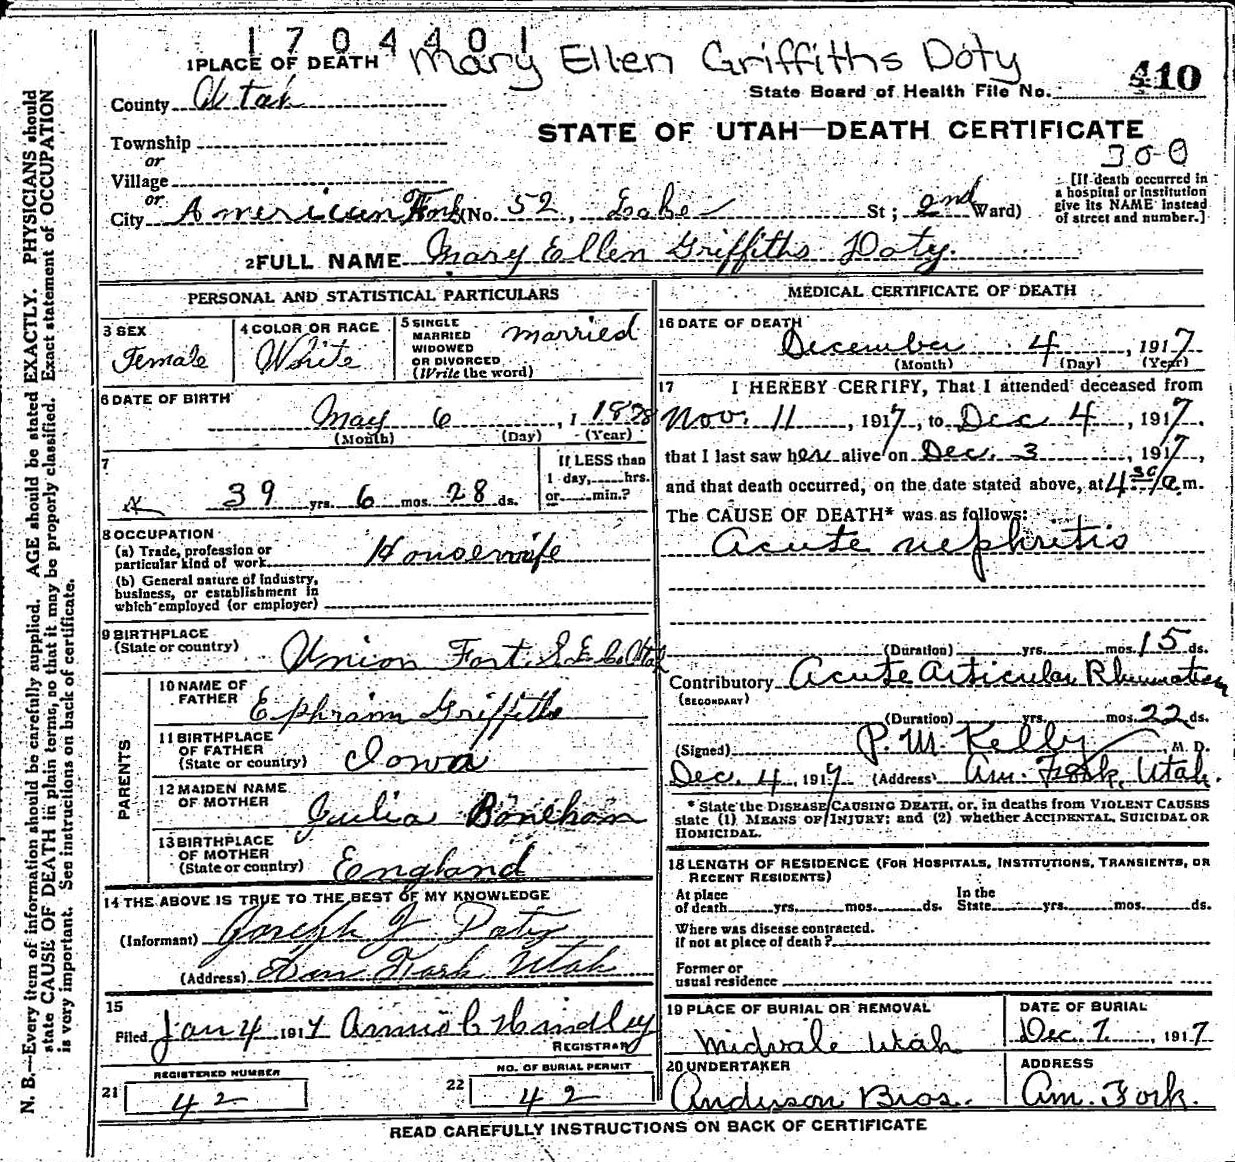 1704401
1 PLACE OF DEATH Mary Ellen Griffiths Doty
State Board of Health File No. 410
County Utah
STATE OF UTAH—DEATH CERTIFICATE
Township
300
or
Village
[If death occurred in a hospital or institution give its NAME instead of street and number.]
or
City American Fork (No. 52, Lake St; 2nd Ward)
2 FULL NAME Mary Ellen Griffiths Doty.
PERSONAL AND STATISTICAL PARTICULARS
3 SEX Female
4 COLOR OR RACE White
5 SINGLE MARRIED WIDOWED OR DIVORCED (Write the word) married
6 DATE OF BIRTH
May 6, 1 1878
(Month) (Day) (Year)
7
39 yrs. 6 mos. 28 ds.
If LESS than 1 day, hrs. or min.?
8 OCCUPATION
(a) Trade, profession or particular kind of work Housewife
(b) General nature of industry, business, or establishment in which employed (or employer)
9 BIRTHPLACE
(State or country) Union Fort. S. L. Co Utah
PARENTS
10 NAME OF FATHER Ephraim Griffiths
11 BIRTHPLACE OF FATHER (State or country) Iowa
12 MAIDEN NAME OF MOTHER Julia Boneham
13 BIRTHPLACE OF MOTHER (State or country) England
14 THE ABOVE IS TRUE TO THE BEST OF MY KNOWLEDGE
(Informant) Joseph J Doty
(Address) Am Fork Utah
15
Filed Jan 4 1917 Annie C Hindley
REGISTRAR
REGISTERED NUMBER
21 42
NO. OF BURIAL PERMIT
22 42
MEDICAL CERTIFICATE OF DEATH
16 DATE OF DEATH
December 4, 1917
(Month) (Day) (Year)
17 I HEREBY CERTIFY, That I attended deceased from
Nov. 11, 1917, to Dec 4, 1917,
that I last saw her alive on Dec. 3, 1917,
and that death occurred, on the date stated above, at 4 30/a m.
The CAUSE OF DEATH* was as follows:
Acute nephritis
(Duration) yrs. mos. 15 ds.
Contributory Acute Articular Rhumatism
(SECONDARY)
(Duration) yrs. mos. 22 ds.
(Signed) P. M. Kelly, M. D.
Dec. 4, 1917 (Address) Am. Fork, Utah.
* State the DISEASE CAUSING DEATH, or, in deaths from VIOLENT CAUSES
state (1) MEANS OF INJURY; and (2) whether ACCIDENTAL, SUICIDAL OR
HOMICIDAL.
18 LENGTH OF RESIDENCE (FOR HOSPITALS, INSTITUTIONS, TRANSIENTS, OR
RECENT RESIDENTS)
At place of death yrs. mos. ds. In the State yrs. mos. ds.
Where was disease contracted.
if not at place of death?
Former or
usual residence
19 PLACE OF BURIAL OR REMOVAL
Midvale Utah
DATE OF BURIAL
Dec 7, 1917
20 UNDERTAKER
Anderson Bros.
ADDRESS
Am. Fork.
READ CAREFULLY INSTRUCTIONS ON BACK OF CERTIFICATE
N. B.—Every item of information should be carefully supplied. AGE should be stated EXACTLY. PHYSICIANS should
state CAUSE OF DEATH in plain terms, so that it may be properly classified. Exact statement of OCCUPATION
is very important. See instructions on back of certificate.